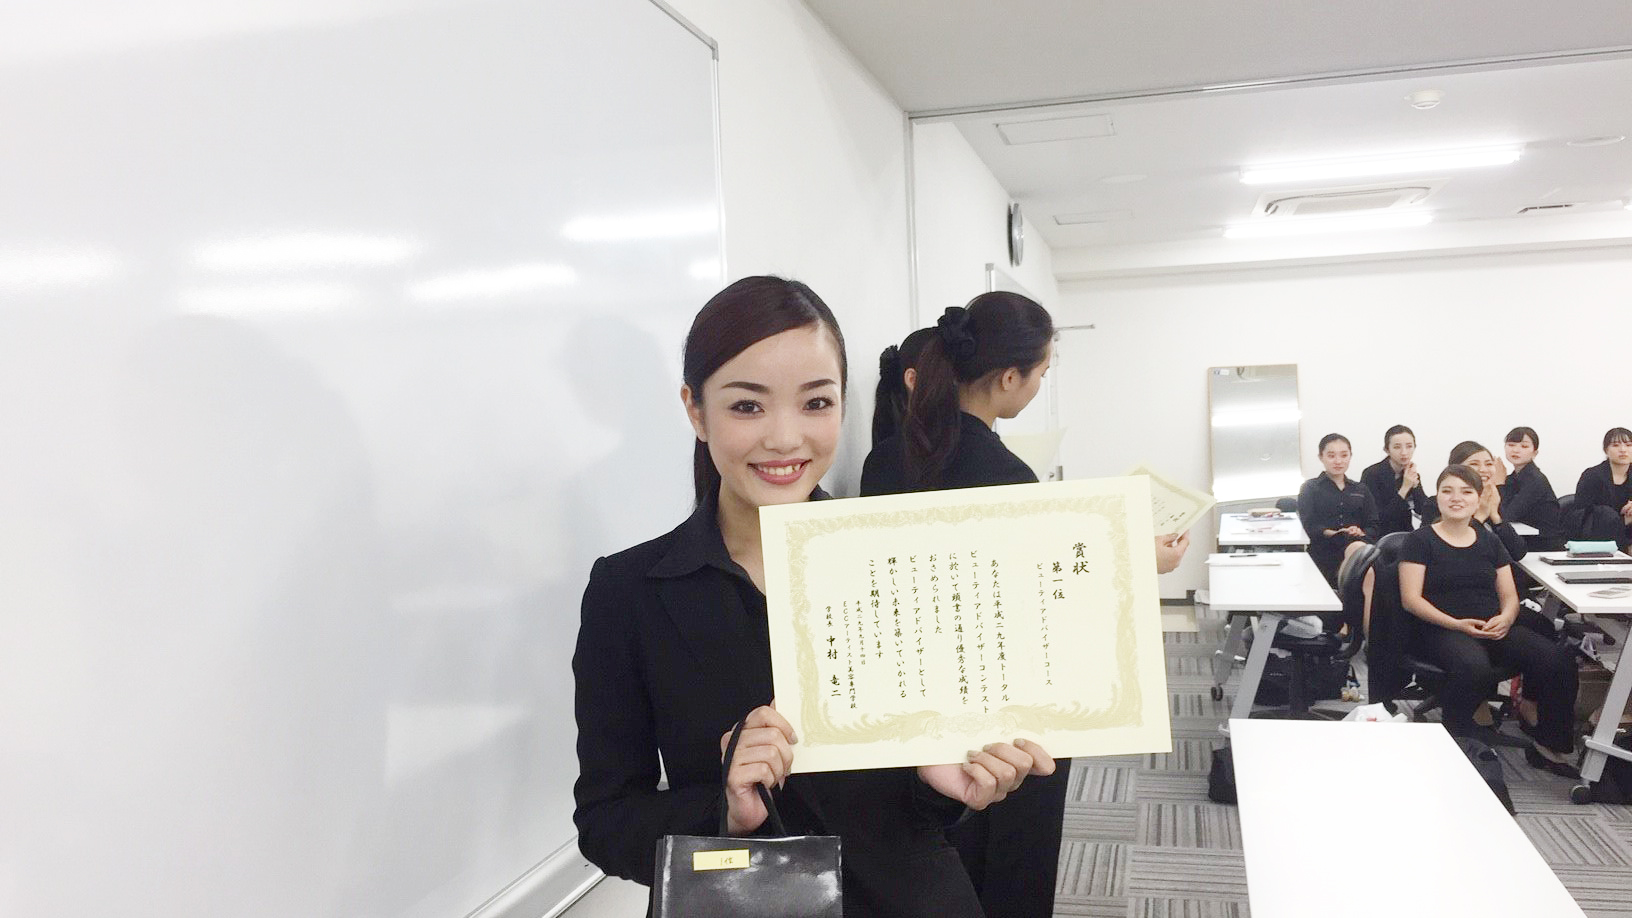 賞状
第一位
ビューティアドバイザーコース
あなたは平成二九年度トータル
ビューティアドバイザーコンテスト
に於いて頭書の通り優秀な成績を
おさめられました
ビューティアドバイザーとして
輝かしい未来を築いていかれる
ことを期待しています
平成二九年九月十四日
ECCアーティスト美容専門学校
学校長 中村 竜二
1位